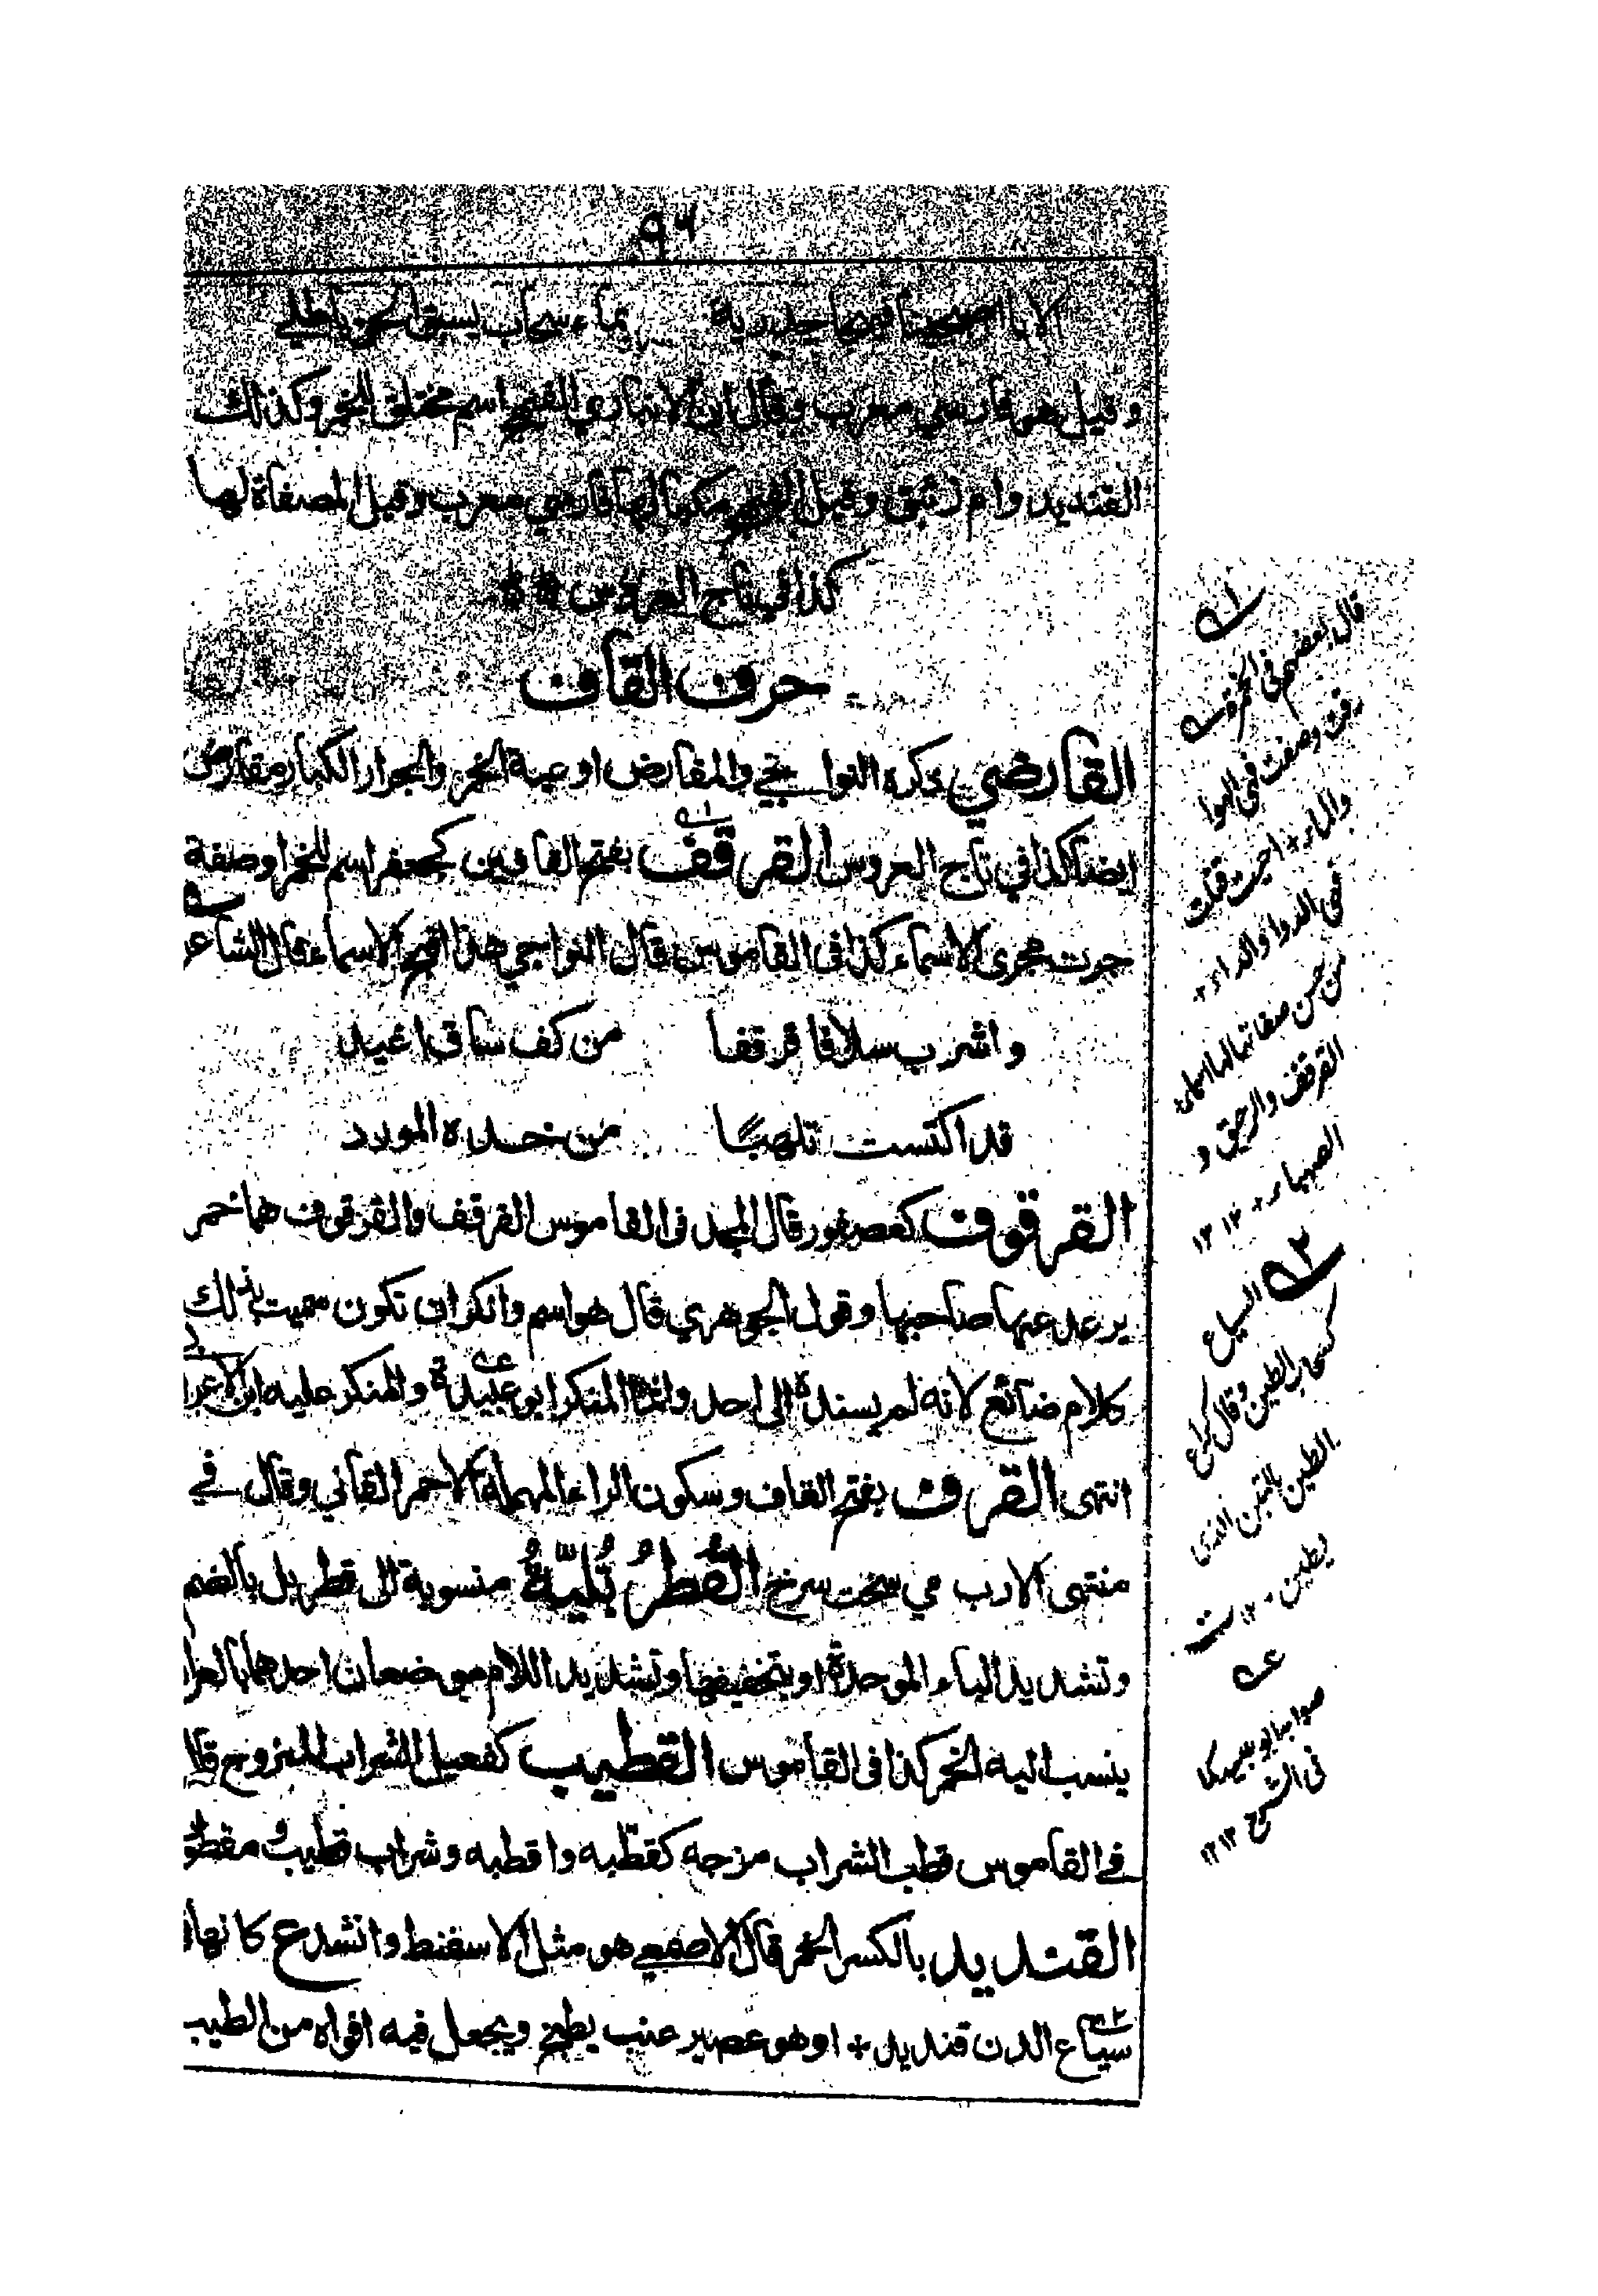 ٩٦
الا يا اصبحينا فيهجا جيدرية بماء سحاب يسبق الحق باطلي
وقيل هو فارسي معرب وقال ابن الانباري الفيهج اسم مختلق للخمر وكذلك
القنديد وام زنبق وقيل الفيهج مكيالها فارسي معرب وقيل المصفاة لها
كذا في تاج العروس
حرف القاف
القارضي ذكره النواجي والمقارض اوعية الخمر والجرار الكبار مقارض
ايضا كذا في تاج العروس القرقف بفتح القافين كجعفر اسم للخمر او صفة
جرت مجرى الاسماء كذا فى القاموس قال النواجي هذا اقبح الاسماء قال الشاعر
واشرب سلافا قرقفا من كف ساق اغيد
قد اكتست تلهبًا من خده المورد
القرقوف كعصفور قال المجد فى القاموس القرقف والقرقوف هما خمر
يرعد عنها صاحبها وقول الجوهري قال هو اسم وانكر ان تكون سميت بذلك
كلام ضائع لانه لم يسنده الى احد وانما المنكر ابو عبيدة والمنكر عليه ابن الاعرا
انتهى القرف بفتح القاف وسكون الراء المهملة الاحمر القاني وقال في
منتهى الادب مي سخت سرخ القُطرُ بُليّةُ منسوبة الى قطربل بالضم
وتشديد الباء الموحدة او بتخفيفها وتشديد اللام موضعان احدهما بالعرا
ينسب اليه الخمر كذا فى القاموس القطيب كفعيل الشراب الممزوج قال
في القاموس قطب الشراب مزجه كقطّبه واقطبه وشراب قطيب ومقطو
القنديد بالكسر الخمر قال الاصمعي هو مثل الاسفنط وانشد ع كانها
سياع الدن قنديد + او هو عصير عنب يطبخ ويجعل فيه افواه من الطيب
١
قال بعضهم فى الخمرة
رقت وصفت فهى الهوا
والماء + احييت قتلت
فهى الدوا والداء +
من حسن صفاتها لها اسماء
القرقف والرحيق و
الصهباء + ١٢ ١٢
٢ السياع
كسحاب الطين وقال كراع
الطين بالتبن الذى
يطين ١٢ ت
عه
صوابه ابو عبيد كما
فى الشرح ١٢ ١٢